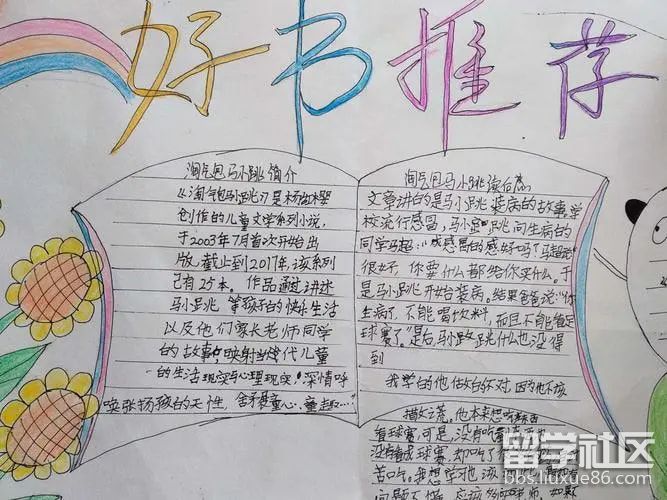 好书推荐
淘气包马小跳简介
《淘气包马小跳》是杨红樱
创作的儿童文学系列小说,
于2003年7月首次开始出
版,截止到2017年,该系列
已有25本。作品通过讲述
马小跳等孩子的快乐生活
以及他们家长老师同学
的故事,映射当代儿童
的生活现实与心理现实,深情呼
唤张扬孩的天性,舍予童心、童趣……
淘气包马小跳读后感
文章讲的是马小跳装病的故事,学
校流行感冒,马小跳问生病的
同学马超:"感冒的感好吗?马超说
很好,你要什么都给你买什么。于
是马小跳开始装病。结果爸爸说:"你
生病了,不能喝饮料,而且不能看足
球赛了"是后,马小跳什么也没得
到
我学的他做的不对,因为他不该
撒谎。他本来想
看球赛可是,没有
没有看球赛却吃了
苦吃,我想学习也
留学社区
bbs.liuxue86.com